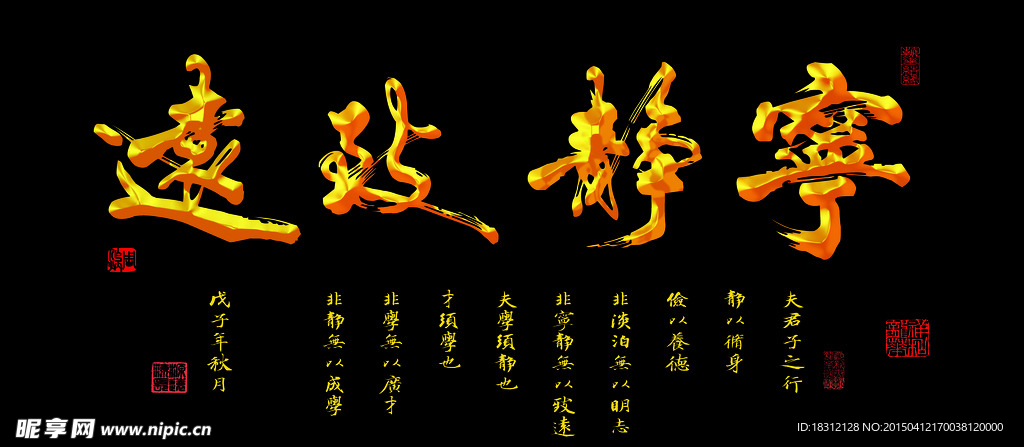 寧靜致遠
夫君子之行
靜以脩身
儉以養德
非淡泊無以明志
非寧靜無以致遠
夫學須靜也
才須學也
非學無以廣才
非靜無以成學
戊子年秋月
昵享网 www.nipic.cn
ID:18312128 NO:20150412170038120000